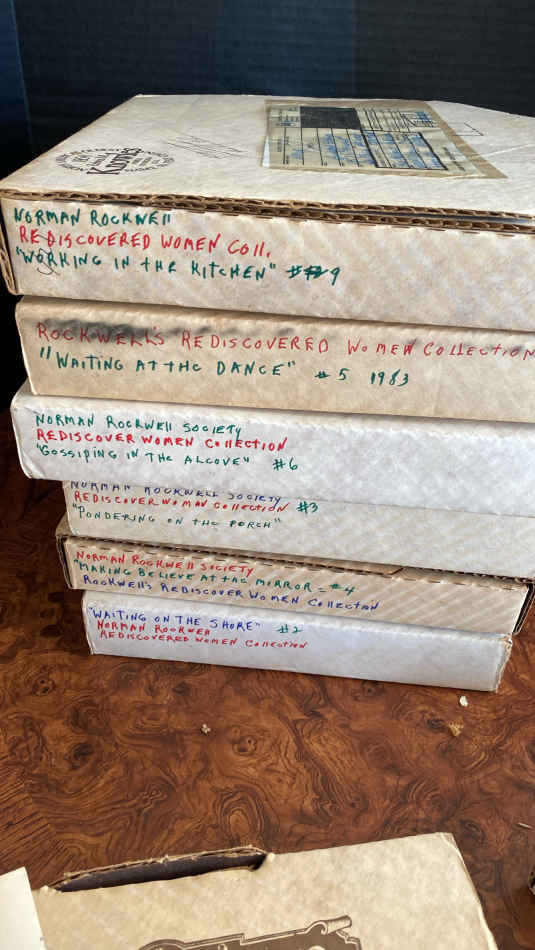 Knowles
NORMAN ROCKWEll
REDISCOVERED WOMEN COll.
"WORKING IN tHE KItCHEN" #9
ROCKWELL'S REDISCOVERED WOMEN COLLECtION
"WAItING At tHC DANCE" #5 1983
NORMAN ROCKWEll SOCIETY
REDISCOVER WOMEN COllECtION
"GOSSIPING IN THE ALCOVE" #6
NORMAN ROCKWELL SOCIETY
REDISCOVER WOMAN COllECtION #3
"PONDERING ON tHE PORCH"
NORMAN ROCKWEll SOCIETY
"MAKING BELIEVE At tHE MIRROR = #4
ROCKWELL'S REDISCOVER WOMEN COLLECtAN
"WAITING ON THE SHORE" #2
NORMAN ROCKWEll
REDISCOVERED WOMEN COllECTION